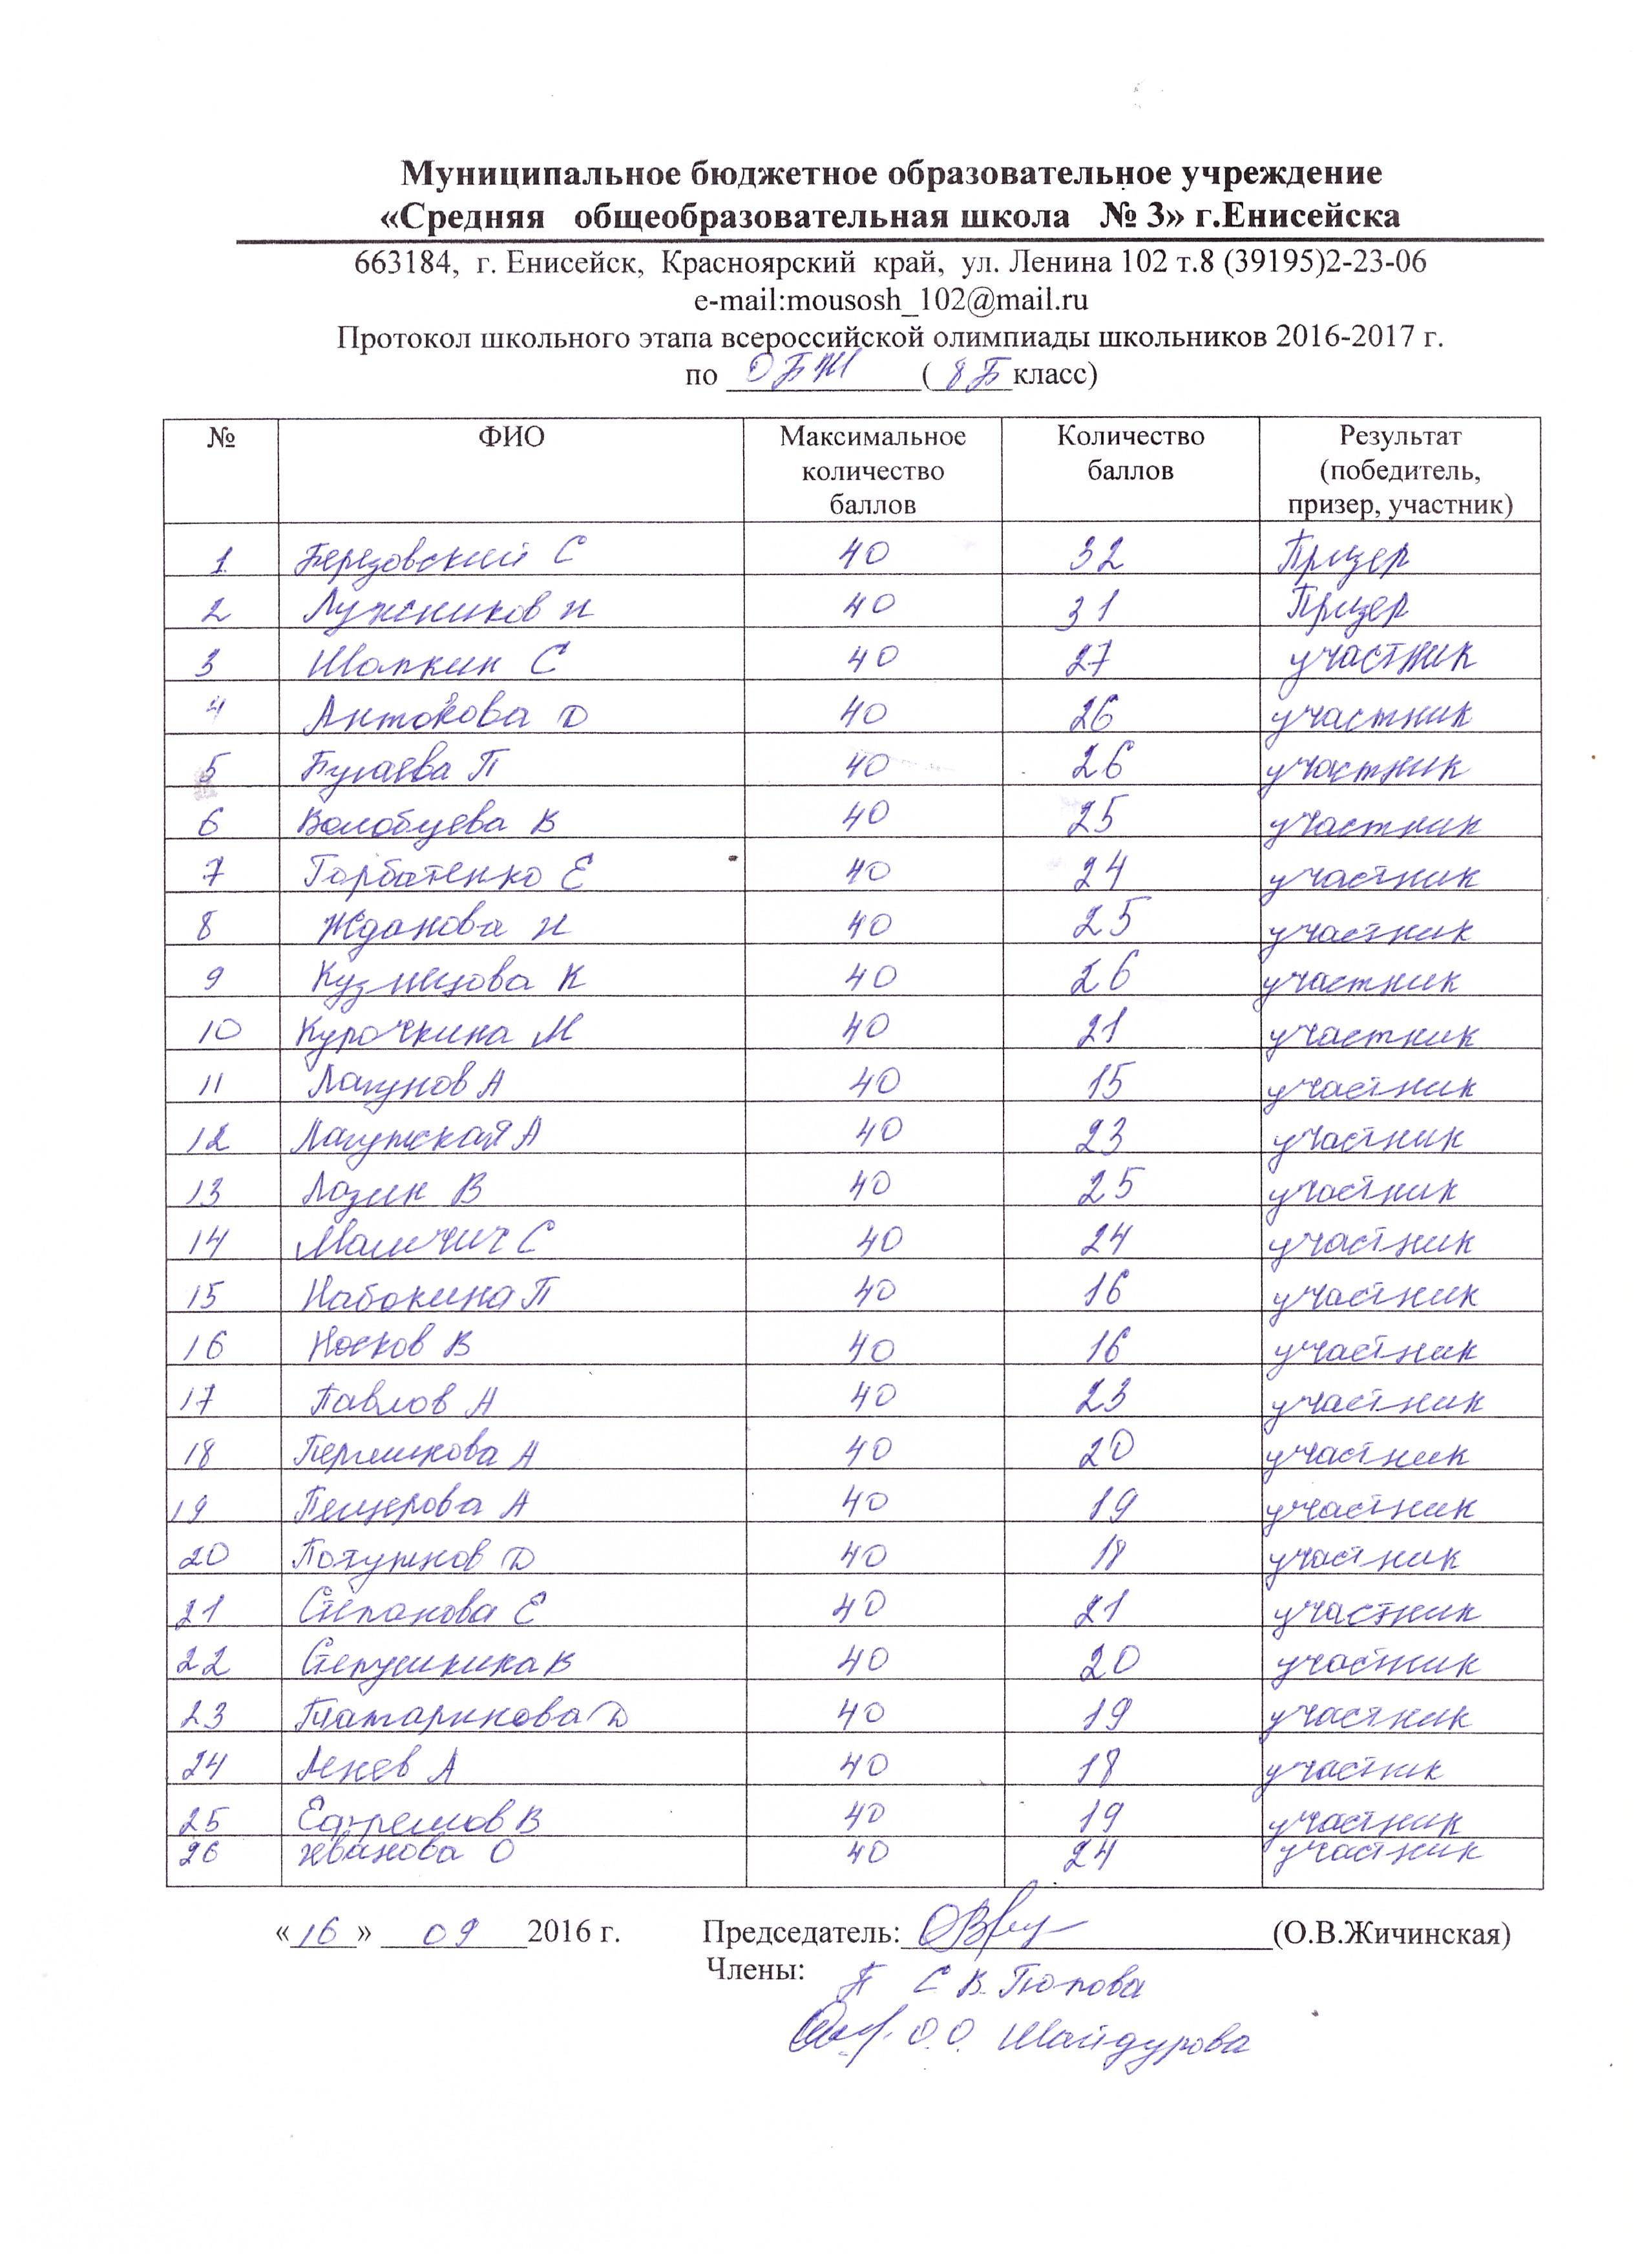 Муниципальное бюджетное образовательное учреждение
«Средняя общеобразовательная школа № 3» г.Енисейска
663184, г. Енисейск, Красноярский край, ул. Ленина 102 т.8 (39195)2-23-06
e-mail:mousosh_102@mail.ru
Протокол школьного этапа всероссийской олимпиады школьников 2016-2017 г.
по ОБЖ (8Б класс)
№ ФИО Максимальное количество баллов Количество баллов Результат (победитель, призер, участник)
1 Березовский С 40 32 Призер
2 Лужников И 40 31 Призер
3 Шапкин С 40 27 участник
4 Антонова Д 40 26 участник
5 Бугаева П 40 26 участник
6 Волобуева В 40 25 участник
7 Горбатенко Е 40 24 участник
8 Жданова И 40 25 участник
9 Кузнецова К 40 26 участник
10 Курочкина М 40 21 участник
11 Лагунов А 40 15 участник
12 А 40 23 участник
13 Лазин В 40 25 участник
14 С 40 24 участник
15 Набокина П 40 16 участник
16 Носков В 40 16 участник
17 Павлов А 40 23 участник
18 Пермикова А 40 20 участник
19 Пещерова А 40 19 участник
20 Д 40 18 участник
21 Степанова Е 40 21 участник
22 Степушкина В 40 20 участник
23 Татаринова Д 40 19 участник
24 Ленев А 40 18 участник
25 Ефремов В 40 19 участник
26 Иванова О 40 24 участник
«16» 09 2016 г. Председатель: (О.В.Жичинская)
Члены: С В. Попова
О.О. Шайдурова